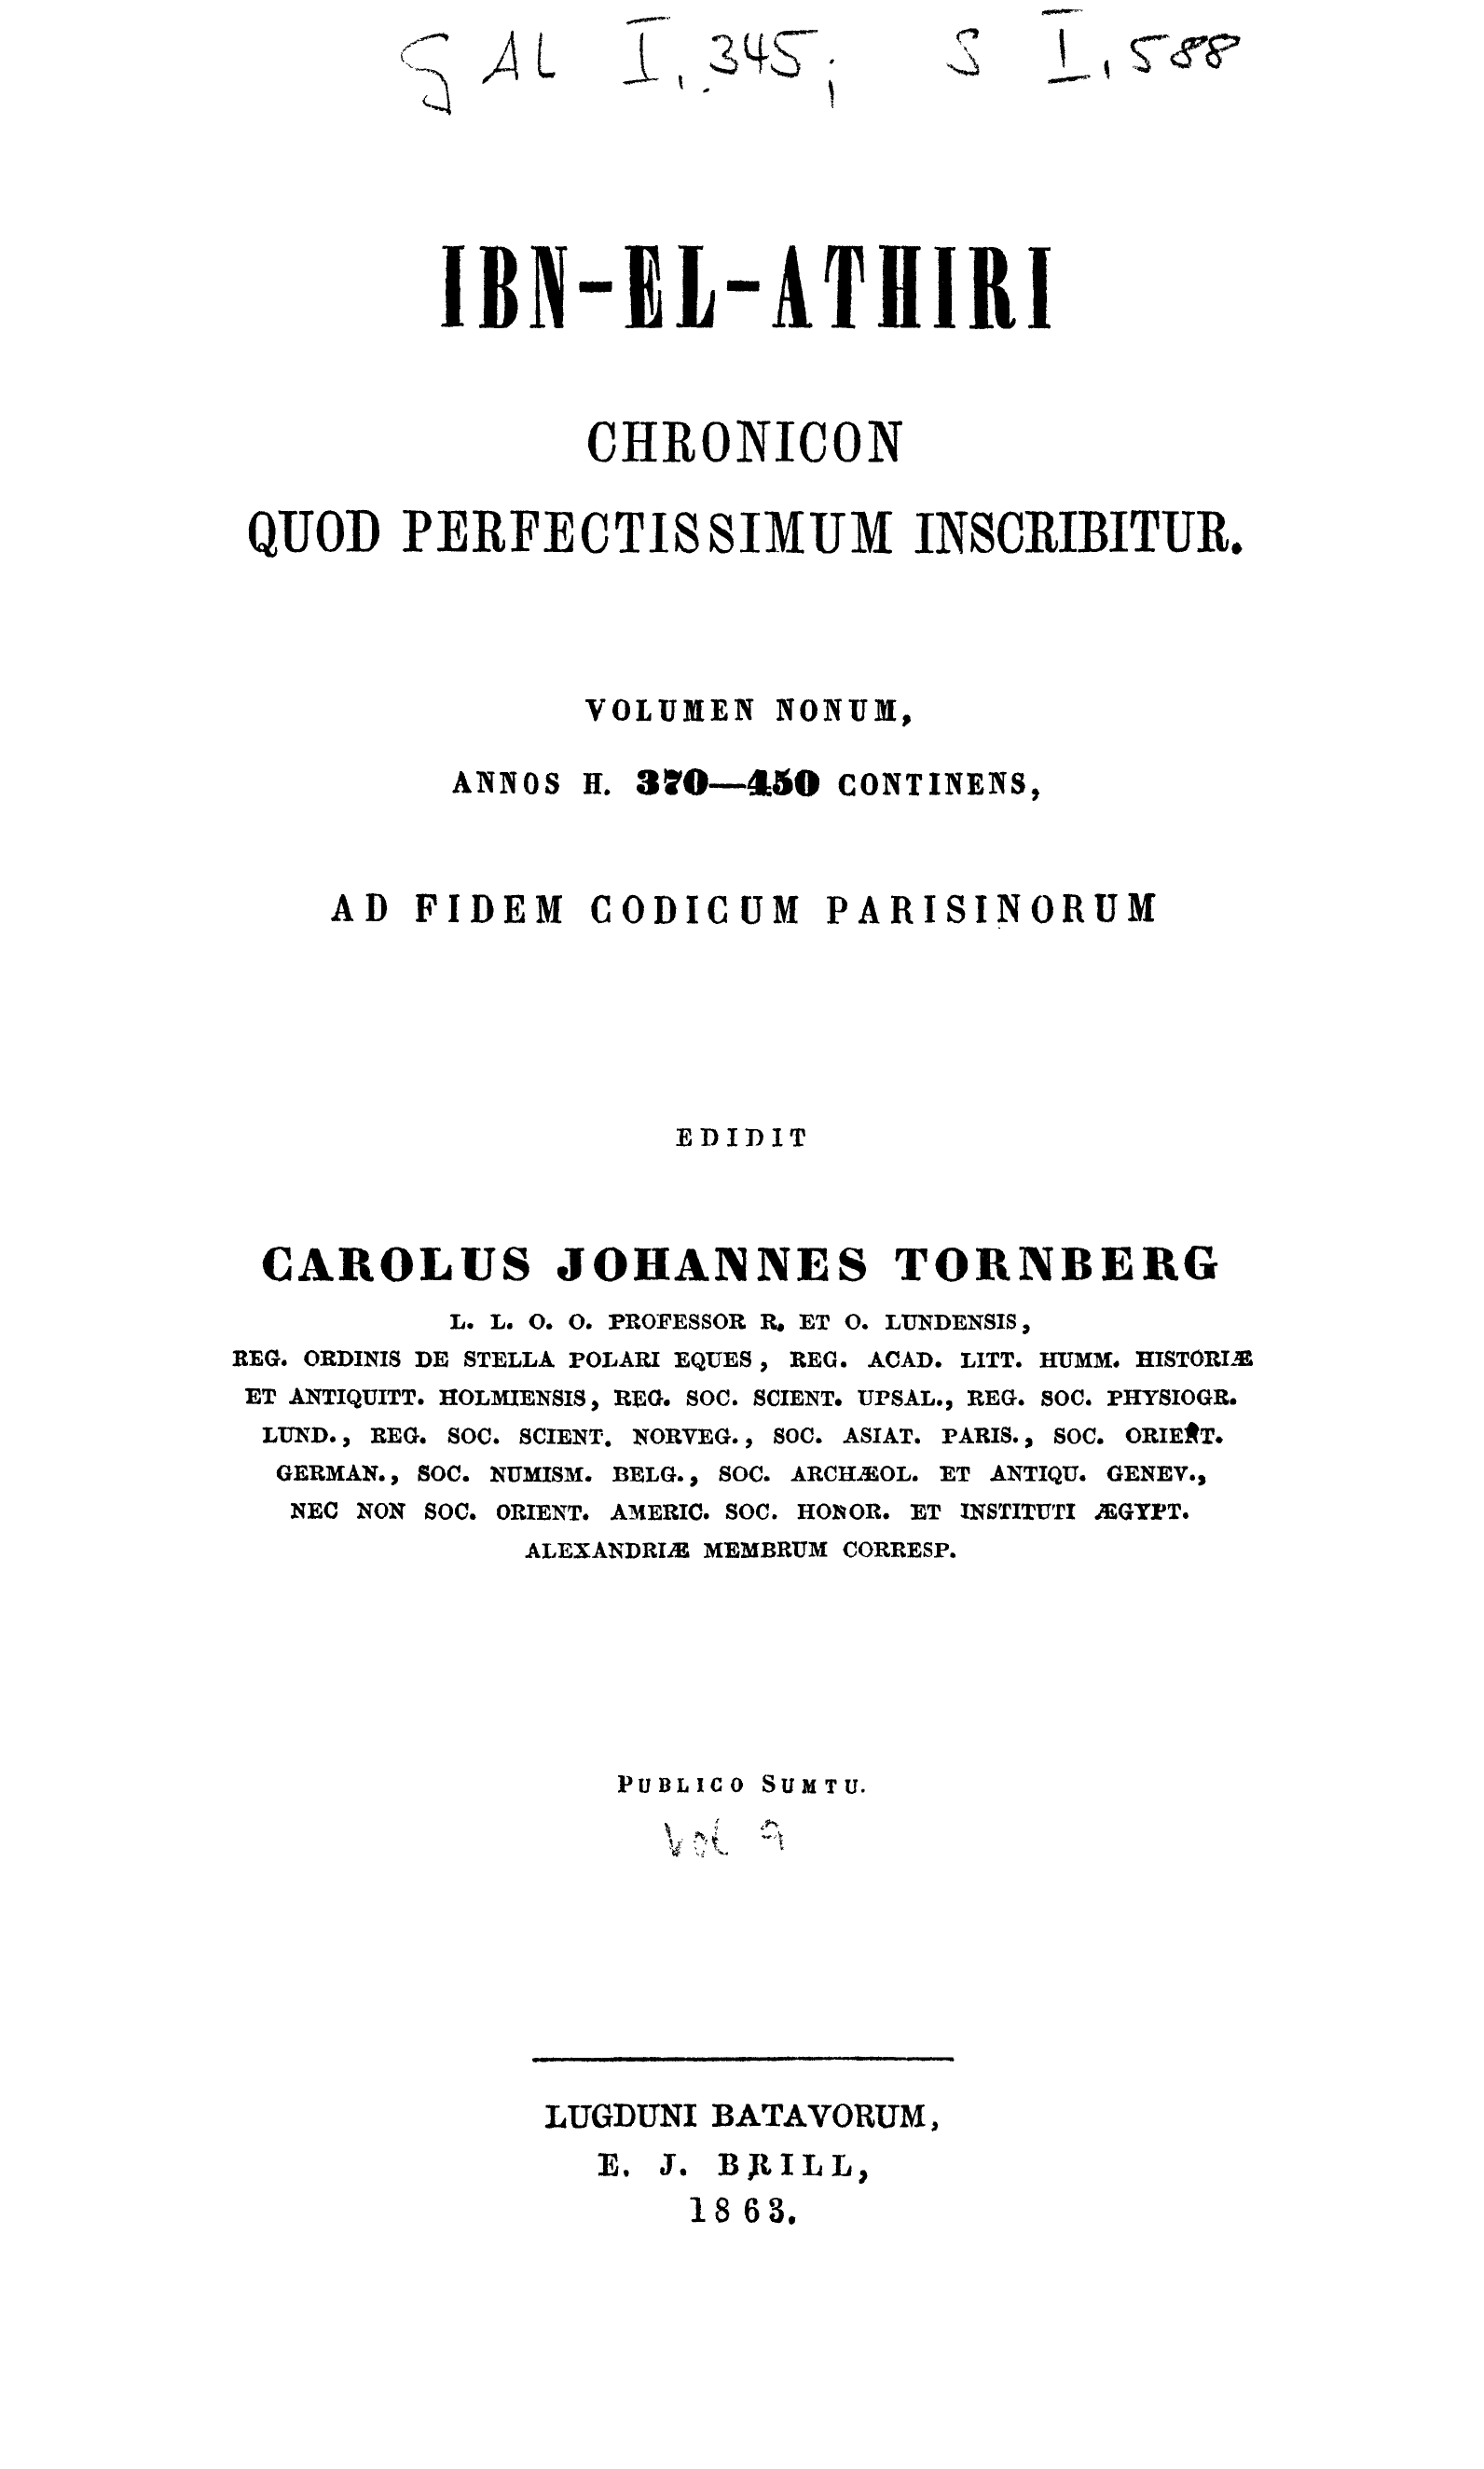 GAL I, 345; S I, 588
IBN-EL-ATHIRI
CHRONICON
QUOD PERFECTISSIMUM INSCRIBITUR.
VOLUMEN NONUM,
ANNOS H. 370—450 CONTINENS,
AD FIDEM CODICUM PARISINORUM
EDIDIT
CAROLUS JOHANNES TORNBERG
L. L. O. O. PROFESSOR R. ET O. LUNDENSIS,
REG. ORDINIS DE STELLA POLARI EQUES, REG. ACAD. LITT. HUMM. HISTORIÆ
ET ANTIQUITT. HOLMIENSIS, REG. SOC. SCIENT. UPSAL., REG. SOC. PHYSIOGR.
LUND., REG. SOC. SCIENT. NORVEG., SOC. ASIAT. PARIS., SOC. ORIENT.
GERMAN., SOC. NUMISM. BELG., SOC. ARCHÆOL. ET ANTIQU. GENEV.,
NEC NON SOC. ORIENT. AMERIC. SOC. HONOR. ET INSTITUTI ÆGYPT.
ALEXANDRIÆ MEMBRUM CORRESP.
PUBLICO SUMTU.
Vol 9
LUGDUNI BATAVORUM,
E. J. BRILL,
1863.